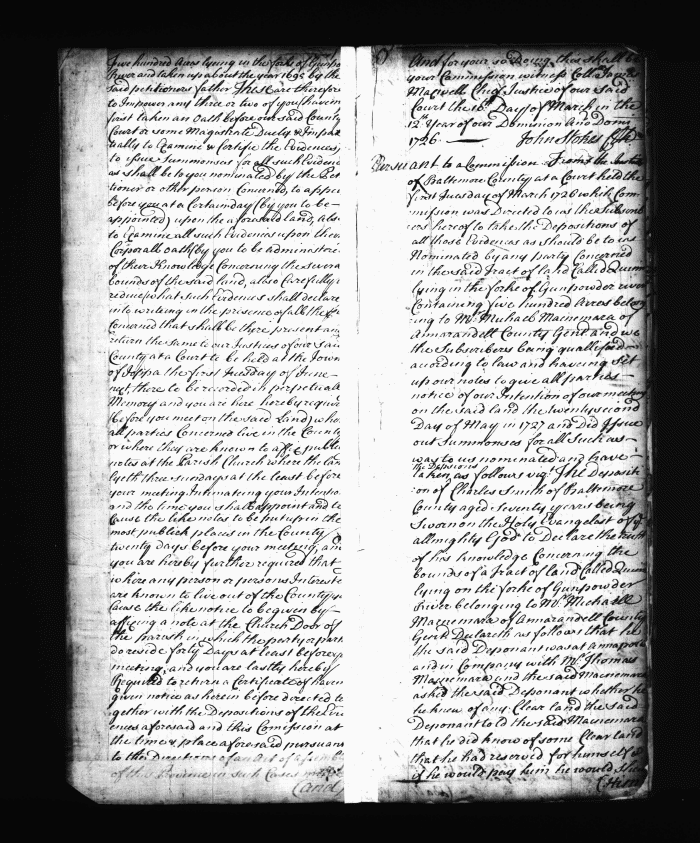 five hundred Acres lying in the forke of Gunpo
River and taken up about the year 1695 by the
said petitioners father These are therefore
to Impower any three or two of you (haveing
first taken an Oath before our said County
Court or some Magistrate Duely & Impar
tially to Examine & Certifie the Evidences
to issue Summonses for all such Evidenc
as shall be to you nominated by the Peti
tioner or other person Concerned, to appea
before you at a Certain day (by you to be
appointed) upon the aforesaid land, also
to Examine all such Evidences upon their
Corporall oath (by you to be administred
of their Knowledge Concerning the severa
bounds of the said land, also Carefully
reduce what such Evidences shall declare
into writeing in the presence of all the
Concerned that shall be there present an
return the same to our Justices of our sai
County at a Court to be held at the Town
of Joppa the first Tuesday of June
next, there to be recorded in perpetuall
Memory and you are here hereby require
(before you meet on the said Land) who
all parties Concerned live in the County
or where they are known to affix publi
notes at the Parish Church where the lan
lyeth three sundays at the least before
your meeting Intimateing your Intensio
and the time you shall appoint and to
Cause the like notes to be put up in the
most publick places in the County
twenty days before your meeting, an
you are hereby further required that
where any person or persons Intereste
are known to live out of the County
Cause the like notice to be given by
affixing a note at the Church Door of
the parish in which the party or parti
do reside forty Days at least before
meeting, and you are lastly hereby
Required to return a Certificate of haven
given notice as herein before directed to
gether with the Depositions of the Evi
ences aforesaid and this Comission at
the time & place aforesaid pursuant
to the directions of an Act of assembl
of this Province in such Cases made
(and
And for your so doing this shall be
your Commission witness Coll. James
Maxwell Chief Justice of our said
Court the 16th Day of March in the
12th Year of our Dominion And Domi
1726 John Stokes Clk
Persuant to a Commission From the Justices
of Baltimore County at a Court held the
first Tuesday of March 1726 which Com
mission was Directed to us the Subscrib
ers hereof to take the Depositions of
all those Evidences as should be to us
Nominated by any party Concerned
in the said Tract of land Called Quinn
lying in the forke of Gunpowder river
Containing five hundred Acres belong
ing to Mr. Michael Macnemara of
Annarandell County Gent and we
the Subscribers being quallifed
acording to law and haveing set
up our notes to give all parties
notice of our Intention of our meeting
on the said land the twenty second
Day of May in 1727 and did Issue
out Summonses for all such as
was to us nominated and have
the Depositions
taken as follows viz. The Deposit
ion of Charles Smith of Baltimore
County aged seventy years being
Sworn on the Holy Evangelast of
allmighty God to Declare the truth
of his knowledge Concerning the
bounds of a Tract of land Called Quinn
lying on the forke of Gunpowder
River belonging to Mr. Michaell
Macnemara of Annarandell County
Gent Declareth as follows that he
the said Deponant was at annapolis
and in Company with Mr. Thomas
Macnemara and the said Macnemara
asked the said Deponant whether he
he knew of any Clear land the said
Deponant told the said Macnemara
that he did know of some Clear land
that he had reserved for himself &
if he would pay him he would shew
(Him